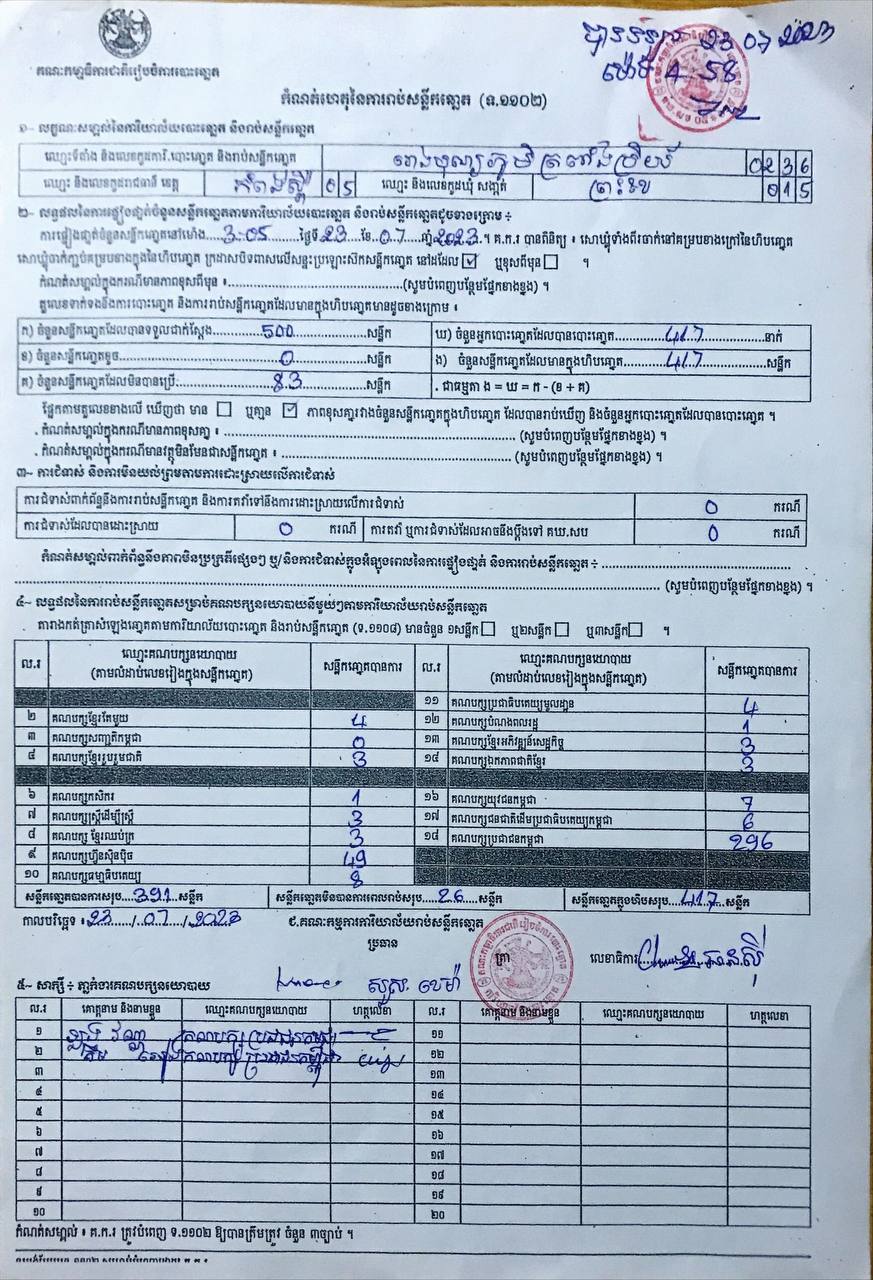 23 07 2023
ម៉ោង 4 58
គណៈកម្មាធិការជាតិរៀបចំការបោះឆ្នោត
កំណត់ហេតុនៃការរាប់សន្លឹកឆ្នោត (ទ.១១០២)
១~ លក្ខណៈសម្គាល់នៃការិយាល័យបោះឆ្នោត និងរាប់សន្លឹកឆ្នោត
ឈ្មោះទីតាំង និងលេខកូដការិ.បោះឆ្នោត និងរាប់សន្លឹកឆ្នោត 0236
ឈ្មោះ និងលេខកូដរាជធានី ខេត្ត កំពង់ស្ពឺ 05 ឈ្មោះ និងលេខកូដឃុំ សង្កាត់ 015
២~ លទ្ធផលនៃការផ្ទៀងផ្ទាត់ចំនួនសន្លឹកឆ្នោតតាមការិយាល័យបោះឆ្នោត និងរាប់សន្លឹកឆ្នោតដូចខាងក្រោម ៖
ការផ្ទៀងផ្ទាត់ចំនួនសន្លឹកឆ្នោតនៅម៉ោង 3:05 ថ្ងៃទី 23 ខែ 07 ឆ្នាំ 2023 ។ គ.ក.រ បានពិនិត្យ ៖ សោឃ្មុំទាំងពីរចាក់នៅគម្របខាងក្រៅនៃហិបឆ្នោត
សោឃ្មុំចាក់ភ្ជាប់គម្របខាងក្នុងនៃហិបឆ្នោត ក្រដាសបិទពាសលើសន្ទះប្រឡោះសឹកសន្លឹកឆ្នោត នៅដដែល ☑ ឬខុសពីមុន ☐ ។
កំណត់សម្គាល់ក្នុងករណីមានភាពខុសពីមុន ៖ (សូមបំពេញបន្ថែមផ្នែកខាងខ្នង) ។
តួលេខទាក់ទងនឹងការបោះឆ្នោត និងការរាប់សន្លឹកឆ្នោតដែលមានក្នុងហិបឆ្នោតមានដូចខាងក្រោម ៖
ក) ចំនួនសន្លឹកឆ្នោតដែលបានទទួលជាក់ស្ដែង 500 សន្លឹក ឃ) ចំនួនអ្នកបោះឆ្នោតដែលបានបោះឆ្នោត 417 នាក់
ខ) ចំនួនសន្លឹកឆ្នោតខូច 0 សន្លឹក ង) ចំនួនសន្លឹកឆ្នោតដែលមានក្នុងហិបឆ្នោត 417 សន្លឹក
គ) ចំនួនសន្លឹកឆ្នោតដែលមិនបានប្រើ 83 សន្លឹក . ជាធម្មតា ង = ឃ = ក - (ខ + គ)
ផ្អែកតាមតួលេខខាងលើ ឃើញថា មាន ☐ ឬគ្មាន ☑ ភាពខុសគ្នារវាងចំនួនសន្លឹកឆ្នោតក្នុងហិបឆ្នោត ដែលបានរាប់ឃើញ និងចំនួនអ្នកបោះឆ្នោតដែលបានបោះឆ្នោត ។
. កំណត់សម្គាល់ក្នុងករណីមានភាពខុសគ្នា ៖ (សូមបំពេញបន្ថែមផ្នែកខាងខ្នង) ។
. កំណត់សម្គាល់ក្នុងករណីមានវត្ថុមិនមែនជាសន្លឹកឆ្នោត ៖ (សូមបំពេញបន្ថែមផ្នែកខាងខ្នង) ។
៣~ ការជំទាស់ និងការមិនយល់ព្រមតាមការដោះស្រាយលើការជំទាស់
ការជំទាស់ពាក់ព័ន្ធនឹងការរាប់សន្លឹកឆ្នោត និងការតវ៉ាទៅនឹងការដោះស្រាយលើការជំទាស់ 0 ករណី
ការជំទាស់ដែលបានដោះស្រាយ 0 ករណី ការតវ៉ា ឬការជំទាស់ដែលអាចនឹងប្ដឹងទៅ គឃ.សប 0 ករណី
កំណត់សម្គាល់ពាក់ព័ន្ធនឹងភាពមិនប្រក្រតីផ្សេងៗ ឬ/និងការជំទាស់ក្នុងអំឡុងពេលនៃការផ្ទៀងផ្ទាត់ និងការរាប់សន្លឹកឆ្នោត ៖
(សូមបំពេញបន្ថែមផ្នែកខាងខ្នង) ។
៤~ លទ្ធផលនៃការរាប់សន្លឹកឆ្នោតសម្រាប់គណបក្សនយោបាយនីមួយៗតាមការិយាល័យរាប់សន្លឹកឆ្នោត
តារាងកត់ត្រាសំឡេងឆ្នោតតាមការិយាល័យបោះឆ្នោត និងរាប់សន្លឹកឆ្នោត (ទ.១១០៨) មានចំនួន ១សន្លឹក ☐ ឬ២សន្លឹក ☐ ឬ៣សន្លឹក ☐ ។
ល.រ ឈ្មោះគណបក្សនយោបាយ (តាមលំដាប់លេខរៀងក្នុងសន្លឹកឆ្នោត) សន្លឹកឆ្នោតបានការ ល.រ ឈ្មោះគណបក្សនយោបាយ (តាមលំដាប់លេខរៀងក្នុងសន្លឹកឆ្នោត) សន្លឹកឆ្នោតបានការ
១១ គណបក្សប្រជាធិបតេយ្យមូលដ្ឋាន 4
២ គណបក្សខ្មែរតែមួយ 4 ១២ គណបក្សបំណងពលរដ្ឋ 1
៣ គណបក្សសញ្ជាតិកម្ពុជា 0 ១៣ គណបក្សខ្មែរអភិវឌ្ឍន៍សេដ្ឋកិច្ច 3
៤ គណបក្សខ្មែររួបរួមជាតិ 3 ១៤ គណបក្សឯកភាពជាតិខ្មែរ 3
៦ គណបក្សកសិករ 1 ១៦ គណបក្សយុវជនកម្ពុជា 7
៧ គណបក្សស្ត្រីដើម្បីស្ត្រី 3 ១៧ គណបក្សជនជាតិដើមប្រជាធិបតេយ្យកម្ពុជា 6
៨ គណបក្ស ខ្មែរឈប់ក្រ 3 ១៨ គណបក្សប្រជាជនកម្ពុជា 296
៩ គណបក្សហ៊្វុនស៊ិនប៉ិច 49
១០ គណបក្សធម្មាធិបតេយ្យ 8
សន្លឹកឆ្នោតបានការសរុប 391 សន្លឹក សន្លឹកឆ្នោតមិនបានការពេលរាប់សរុប 26 សន្លឹក សន្លឹកឆ្នោតក្នុងហិបសរុប 417 សន្លឹក
កាលបរិច្ឆេទ ៖ 23 / 07 / 2023 ជ.គណៈកម្មការការិយាល័យរាប់សន្លឹកឆ្នោត
ប្រធាន ត្រា លេខាធិការ
៥~ សាក្សី ៖ ភ្នាក់ងារគណបក្សនយោបាយ
ល.រ គោត្តនាម និងនាមខ្លួន ឈ្មោះគណបក្សនយោបាយ ហត្ថលេខា ល.រ គោត្តនាម និងនាមខ្លួន ឈ្មោះគណបក្សនយោបាយ ហត្ថលេខា
១ គណបក្សប្រជាជនកម្ពុជា ១១
២ គណបក្សប្រជាជនកម្ពុជា ១២
៣ ១៣
៤ ១៤
៥ ១៥
៦ ១៦
៧ ១៧
៨ ១៨
៩ ១៩
១០ ២០
កំណត់សម្គាល់ ៖ គ.ក.រ ត្រូវបំពេញ ទ.១១០២ ឱ្យបានត្រឹមត្រូវ ចំនួន ៣ច្បាប់ ។